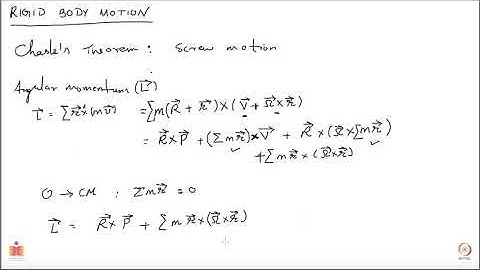 RIGID BODY MOTION
Chasle's Theorem : Screw motion
Angular momentum (L⃗)
L⃗ = Σ r⃗' × (m v⃗) = Σ m(R⃗ + r⃗) × (V⃗ + Ω⃗ × r⃗)
= R⃗ × P⃗ + (Σ m r⃗) × V⃗ + R⃗ × (Ω⃗ × Σ m r⃗)
+ Σ m r⃗ × (Ω⃗ × r⃗)
O → CM : Σ m r⃗ = 0
L⃗ = R⃗ × P⃗ + Σ m r⃗ × (Ω⃗ × r⃗)